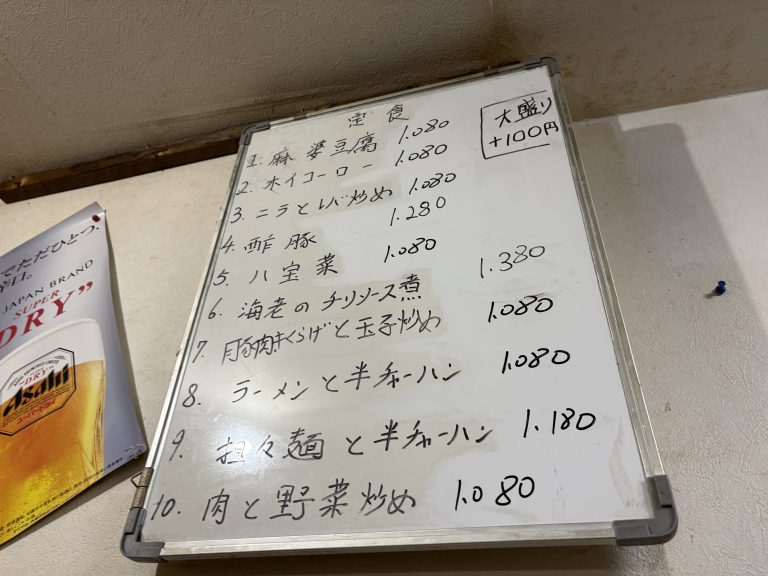 定食
大盛り
+100円
1. 麻婆豆腐 1.080
2. ホイコーロー 1.080
3. ニラとレバ炒め 1.080
4. 酢豚 1.280
5. 八宝菜 1.080
6. 海老のチリソース煮 1.380
7. 豚肉きくらげと玉子炒め 1.080
8. ラーメンと半チャーハン 1.080
9. 担々麺と半チャーハン 1.180
10. 肉と野菜炒め 1.080
でただひとつ、
辛口。
JAPAN BRAND
SUPER
"DRY"
"DRY"
Asahi
スーパードライ